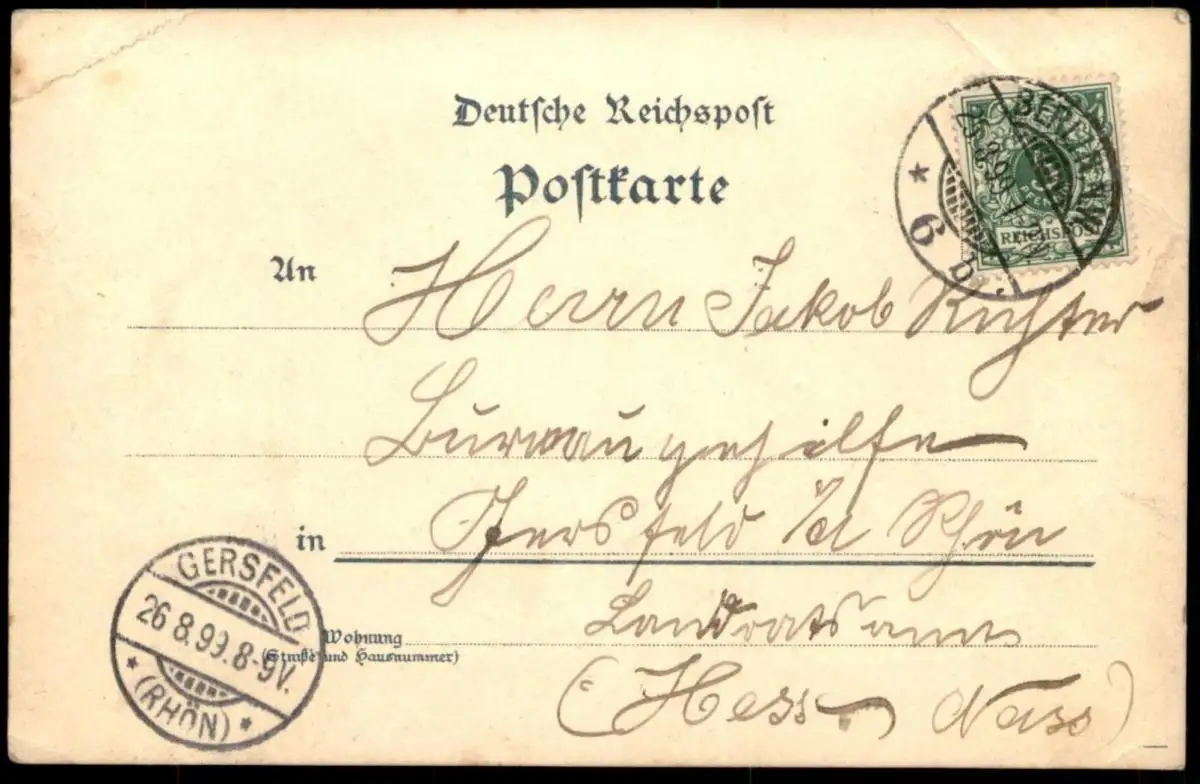 Deutsche Reichspost
Postkarte
An Herrn Jakob Richter
Bureaugehilfe
in Gersfeld i/d Rhön
Wohnung
(Straße und Hausnummer)
Landratsamt
(Hess. Nass)
BERLIN, N.W.
25.8.99.
* 6 b.
REICHSPOST
GERSFELD
26.8.99.8-9V.
* (RHÖN) *